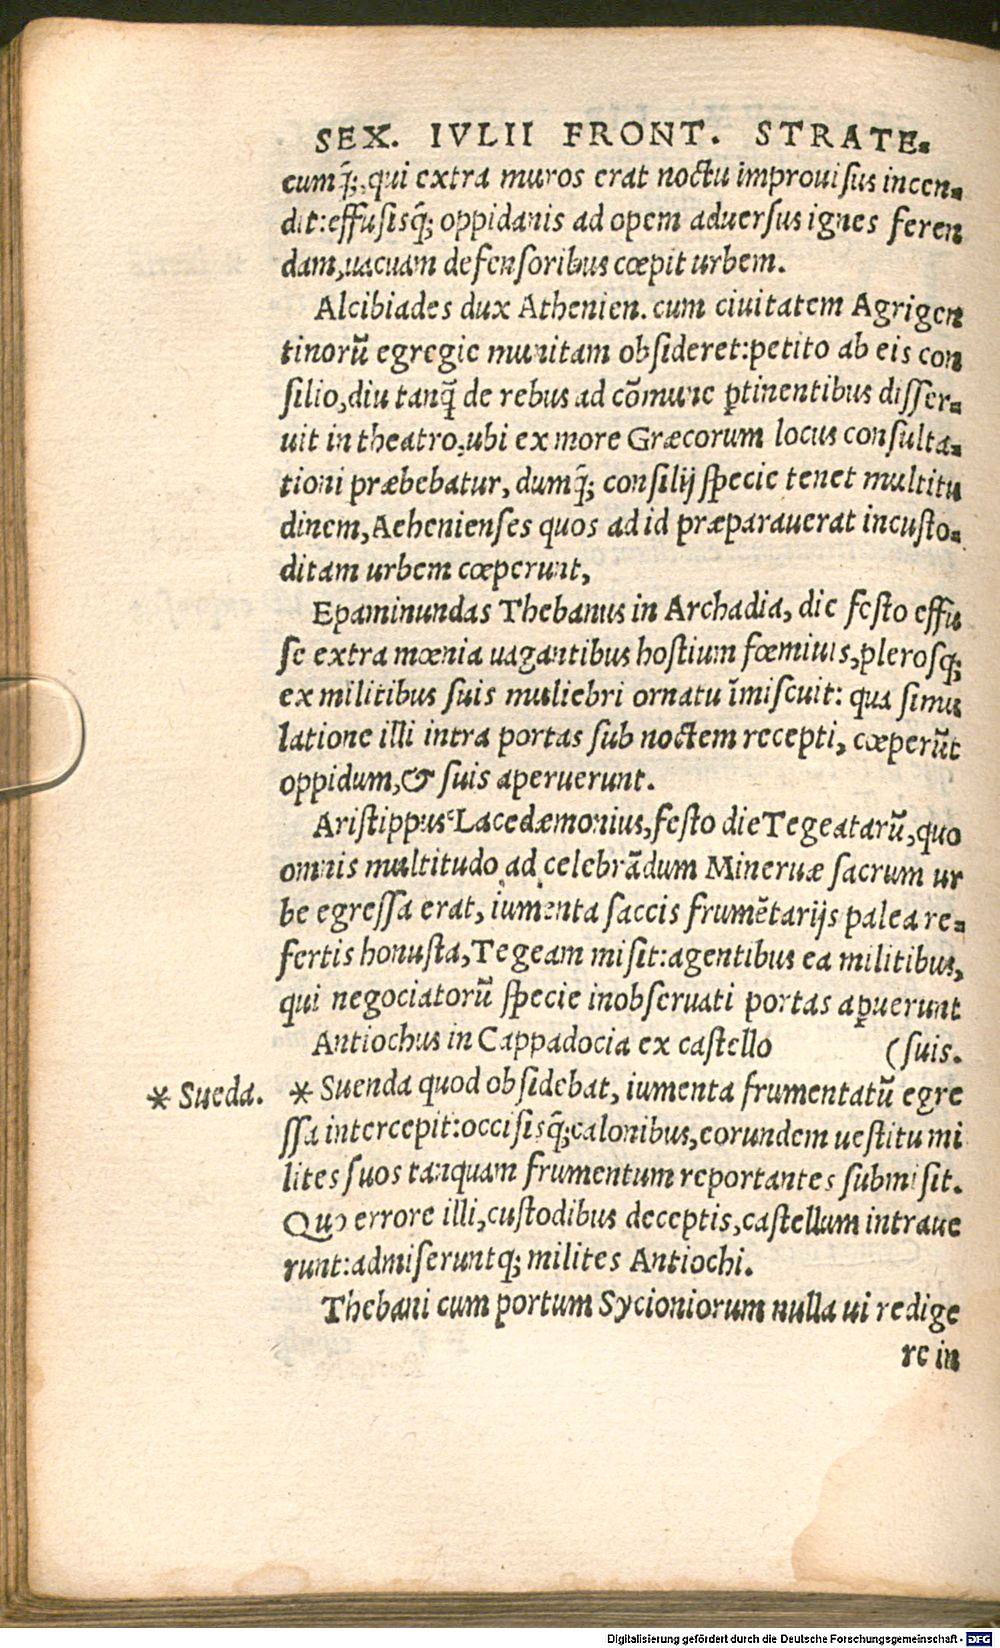 SEX. IVLII FRONT. STRATE-
cumq̃;, qui extra muros erat noctu improuisus incen-
dit: effusisq̃; oppidanis ad opem aduersus ignes feren
dam, uacuam defensoribus cœpit urbem.
Alcibiades dux Athenien. cum ciuitatem Agrigen
tinorũ egregie munitam obsideret: petito ab eis con
silio, diu tanq̃ de rebus ad cõmune ꝑtinentibus disser-
uit in theatro, ubi ex more Græcorum locus consulta-
tioni præbebatur, dumq̃; consilij specie tenet multitu
dinem, Aehenienses quos ad id præparauerat incusto-
ditam urbem cœperunt,
Epaminundas Thebanus in Archadia, die festo effu
se extra mœnia uagantibus hostium fœminis, plerosq;
ex militibus suis muliebri ornatu ĩmiscuit: qua simu
latione illi intra portas sub noctem recepti, cœperũt
oppidum, & suis aperuerunt.
Aristippus Lacedæmonius, festo die Tegeatarũ, quo
omnis multitudo ad celebrãdum Mineruæ sacrum ur
be egressa erat, iumenta saccis frumẽtarijs palea re-
fertis honusta, Tegeam misit: agentibus ea militibus,
qui negociatorũ specie inobseruati portas aꝑuerunt
Antiochus in Cappadocia ex castello (suis.
* Sueda. * Suenda quod obsidebat, iumenta frumentatũ egre
ssa intercepit: occisisq̃; calonibus, eorundem uestitu mi
lites suos tanquam frumentum reportantes submisit.
Quo errore illi, custodibus deceptis, castellum intraue
runt: admiseruntq; milites Antiochi.
Thebani cum portum Sycioniorum nulla ui redige
re in
Digitalisierung gefördert durch die Deutsche Forschungsgemeinschaft - DFG